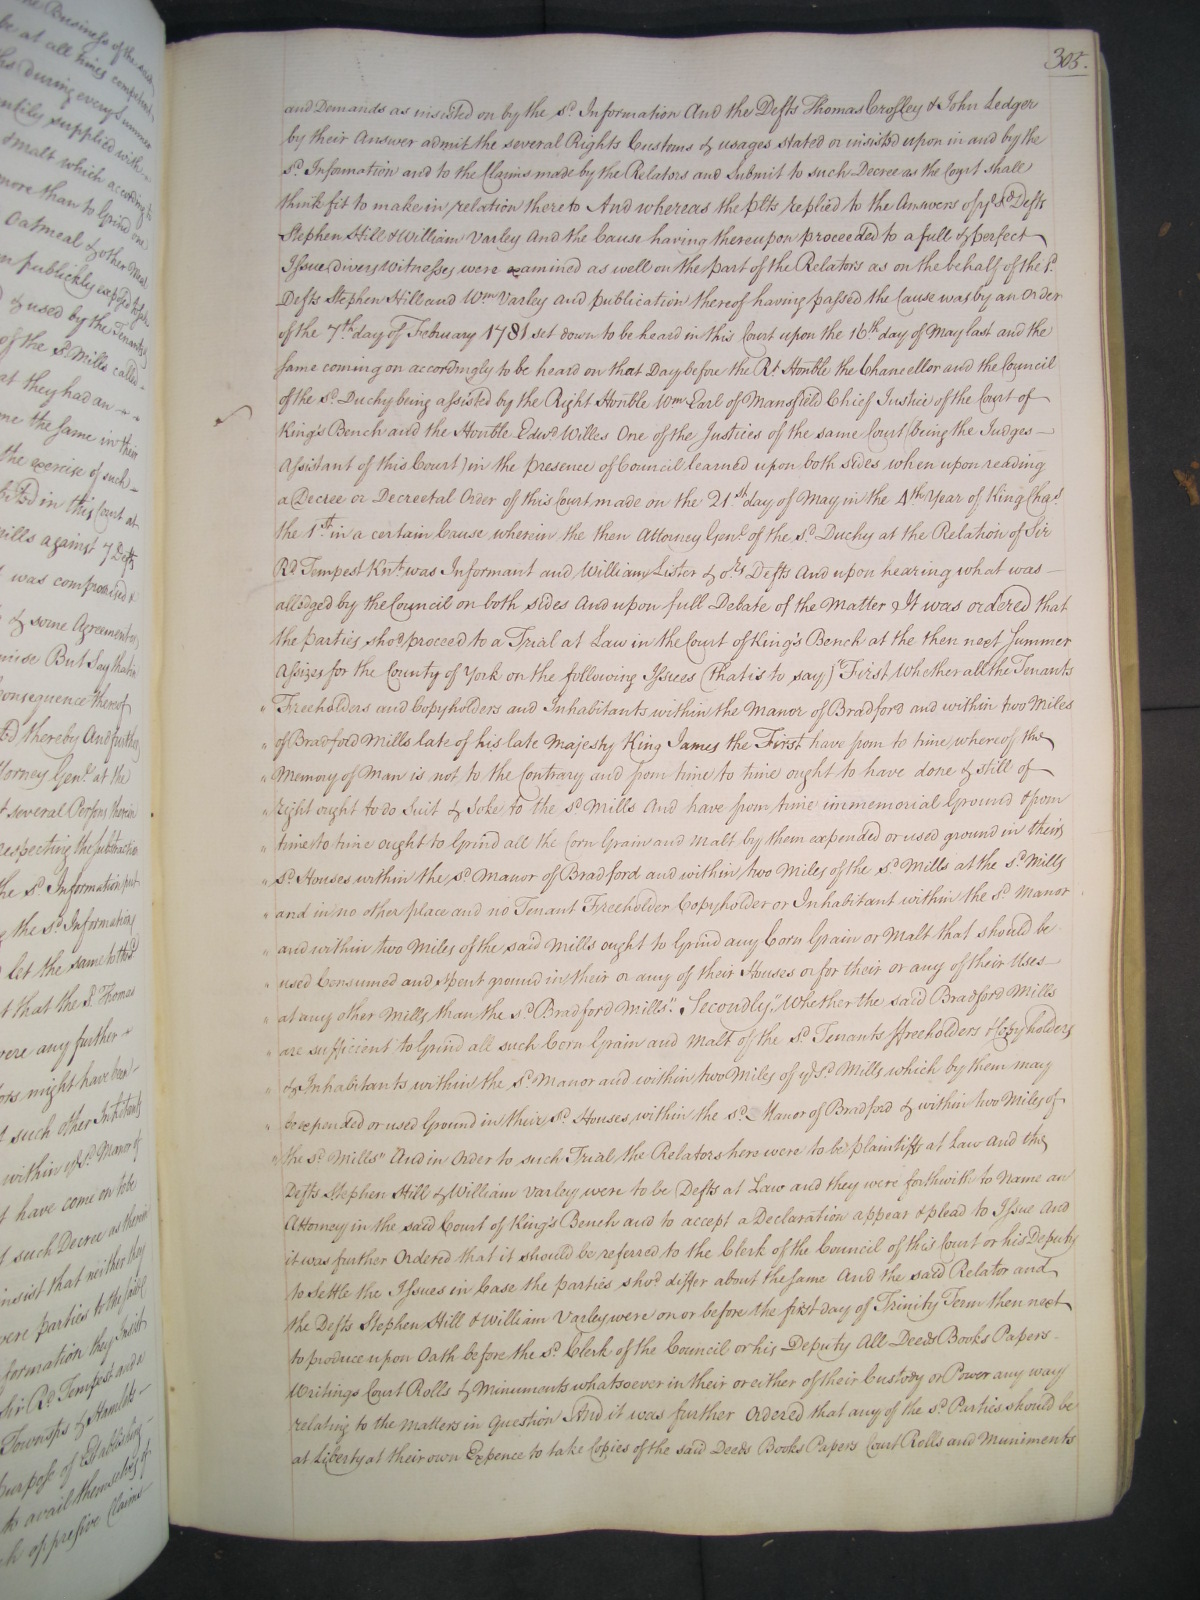 305.
and Demands as insisted on by the sd. Information And the Defts Thomas Crosley & John Ledger
by their Answer admit the several Rights Customs & usages stated or insisted upon in and by the
sd. Information and to the Claims made by the Relators and Submit to such Decree as the Court shall
think fit to make in relation thereto And whereas the plts replied to the Answers of ye. sd. Defts
Stephen Hill & William Varley And the Cause having thereupon proceeded to a full & perfect
Issue divers Witnesses were examined as well on the part of the Relators as on the behalf of the sd.
Defts Stephen Hill and Wm Varley and publication thereof having passed the Cause was by an Order
of the 7th day of February 1781 set down to be heard in this Court upon the 16th day of May last and the
same coming on accordingly to be heard on that Day before the Rt. Honble the Chancellor and the Council
of the sd. Duchy being assisted by the Right Honble Wm Earl of Mansfield Chief Justice of the Court of
King's Bench and the Honble Edwd. Willes One of the Justices of the same Court (being the Judges
Assistant of this Court) in the presence of Council learned upon both sides when upon reading
a Decree or Decreetal Order of this Court made on the 21st day of May in the 4th Year of King Chas.
the 1st. in a certain Cause wherein the then Attorney Genl. of the sd. Duchy at the Relation of Sir
Rd. Tempest Knt. was Informant and William Lister & ors. Defts And upon hearing what was
alledged by the Council on both sides And upon full Debate of the Matter It was ordered that
the parties shod. proceed to a Trial at Law in the Court of King's Bench at the then next Summer
Assizes for the County of York on the following Issues (that is to say) "First Whether all the Tenants
" Freeholders and Copyholders and Inhabitants within the Manor of Bradford and within two Miles
" of Bradford Mills late of his late Majesty King James the First have from to time whereof the
" Memory of Man is not to the Contrary and from time to time ought to have done & still of
" right ought to do Suit & Soke to the sd. Mills And have from time immemorial Ground & from
" time to time ought to Grind all the Corn Grain and Malt by them expended or used ground in their
" sd. Houses within the sd. Manor of Bradford and within two Miles of the sd. Mills at the sd. Mills
" and in no other place and no Tenant Freeholder Copyholder or Inhabitant within the sd. Manor
" and within two Miles of the said Mills ought to Grind any Corn Grain or Malt that should be
" used Consumed and spent ground in their or any of their Houses or for their or any of their Uses
" at any other Mills than the sd. Bradford Mills". Secondly, "Whether the said Bradford Mills
" are sufficient to Grind all such Corn Grain and Malt of the sd. Tenants ffreeholders & Copyholders
" & Inhabitants within the sd. Manor and within two Miles of ye. sd. Mills which by them may
" be expended or used Ground in their sd. Houses within the sd. Manor of Bradford & within two Miles of
" the sd. Mills" And in Order to such Trial the Relators here were to be plaintiffs at Law and the
Defts Stephen Hill & William Varley were to be Defts at Law and they were forthwith to Name an
Attorney in the said Court of King's Bench and to accept a Declaration appear & plead to Issue And
it was further Ordered that it should be referred to the Clerk of the Council of this Court or his Deputy
to Settle the Issues in Case the parties shod. differ about the same And the said Relator and
the Defts Stephen Hill & William Varley were on or before the first day of Trinity Term then next
to produce upon Oath before the sd. Clerk of the Council or his Deputy All Deeds Books Papers
Writings Court Rolls & Minuments whatsoever in their or either of their Custody or Power any way
relating to the matters in question And it was further Ordered that any of the sd. Parties should be
at Liberty at their own Expence to take Copies of the said Deeds Books Papers Court Rolls and Muniments